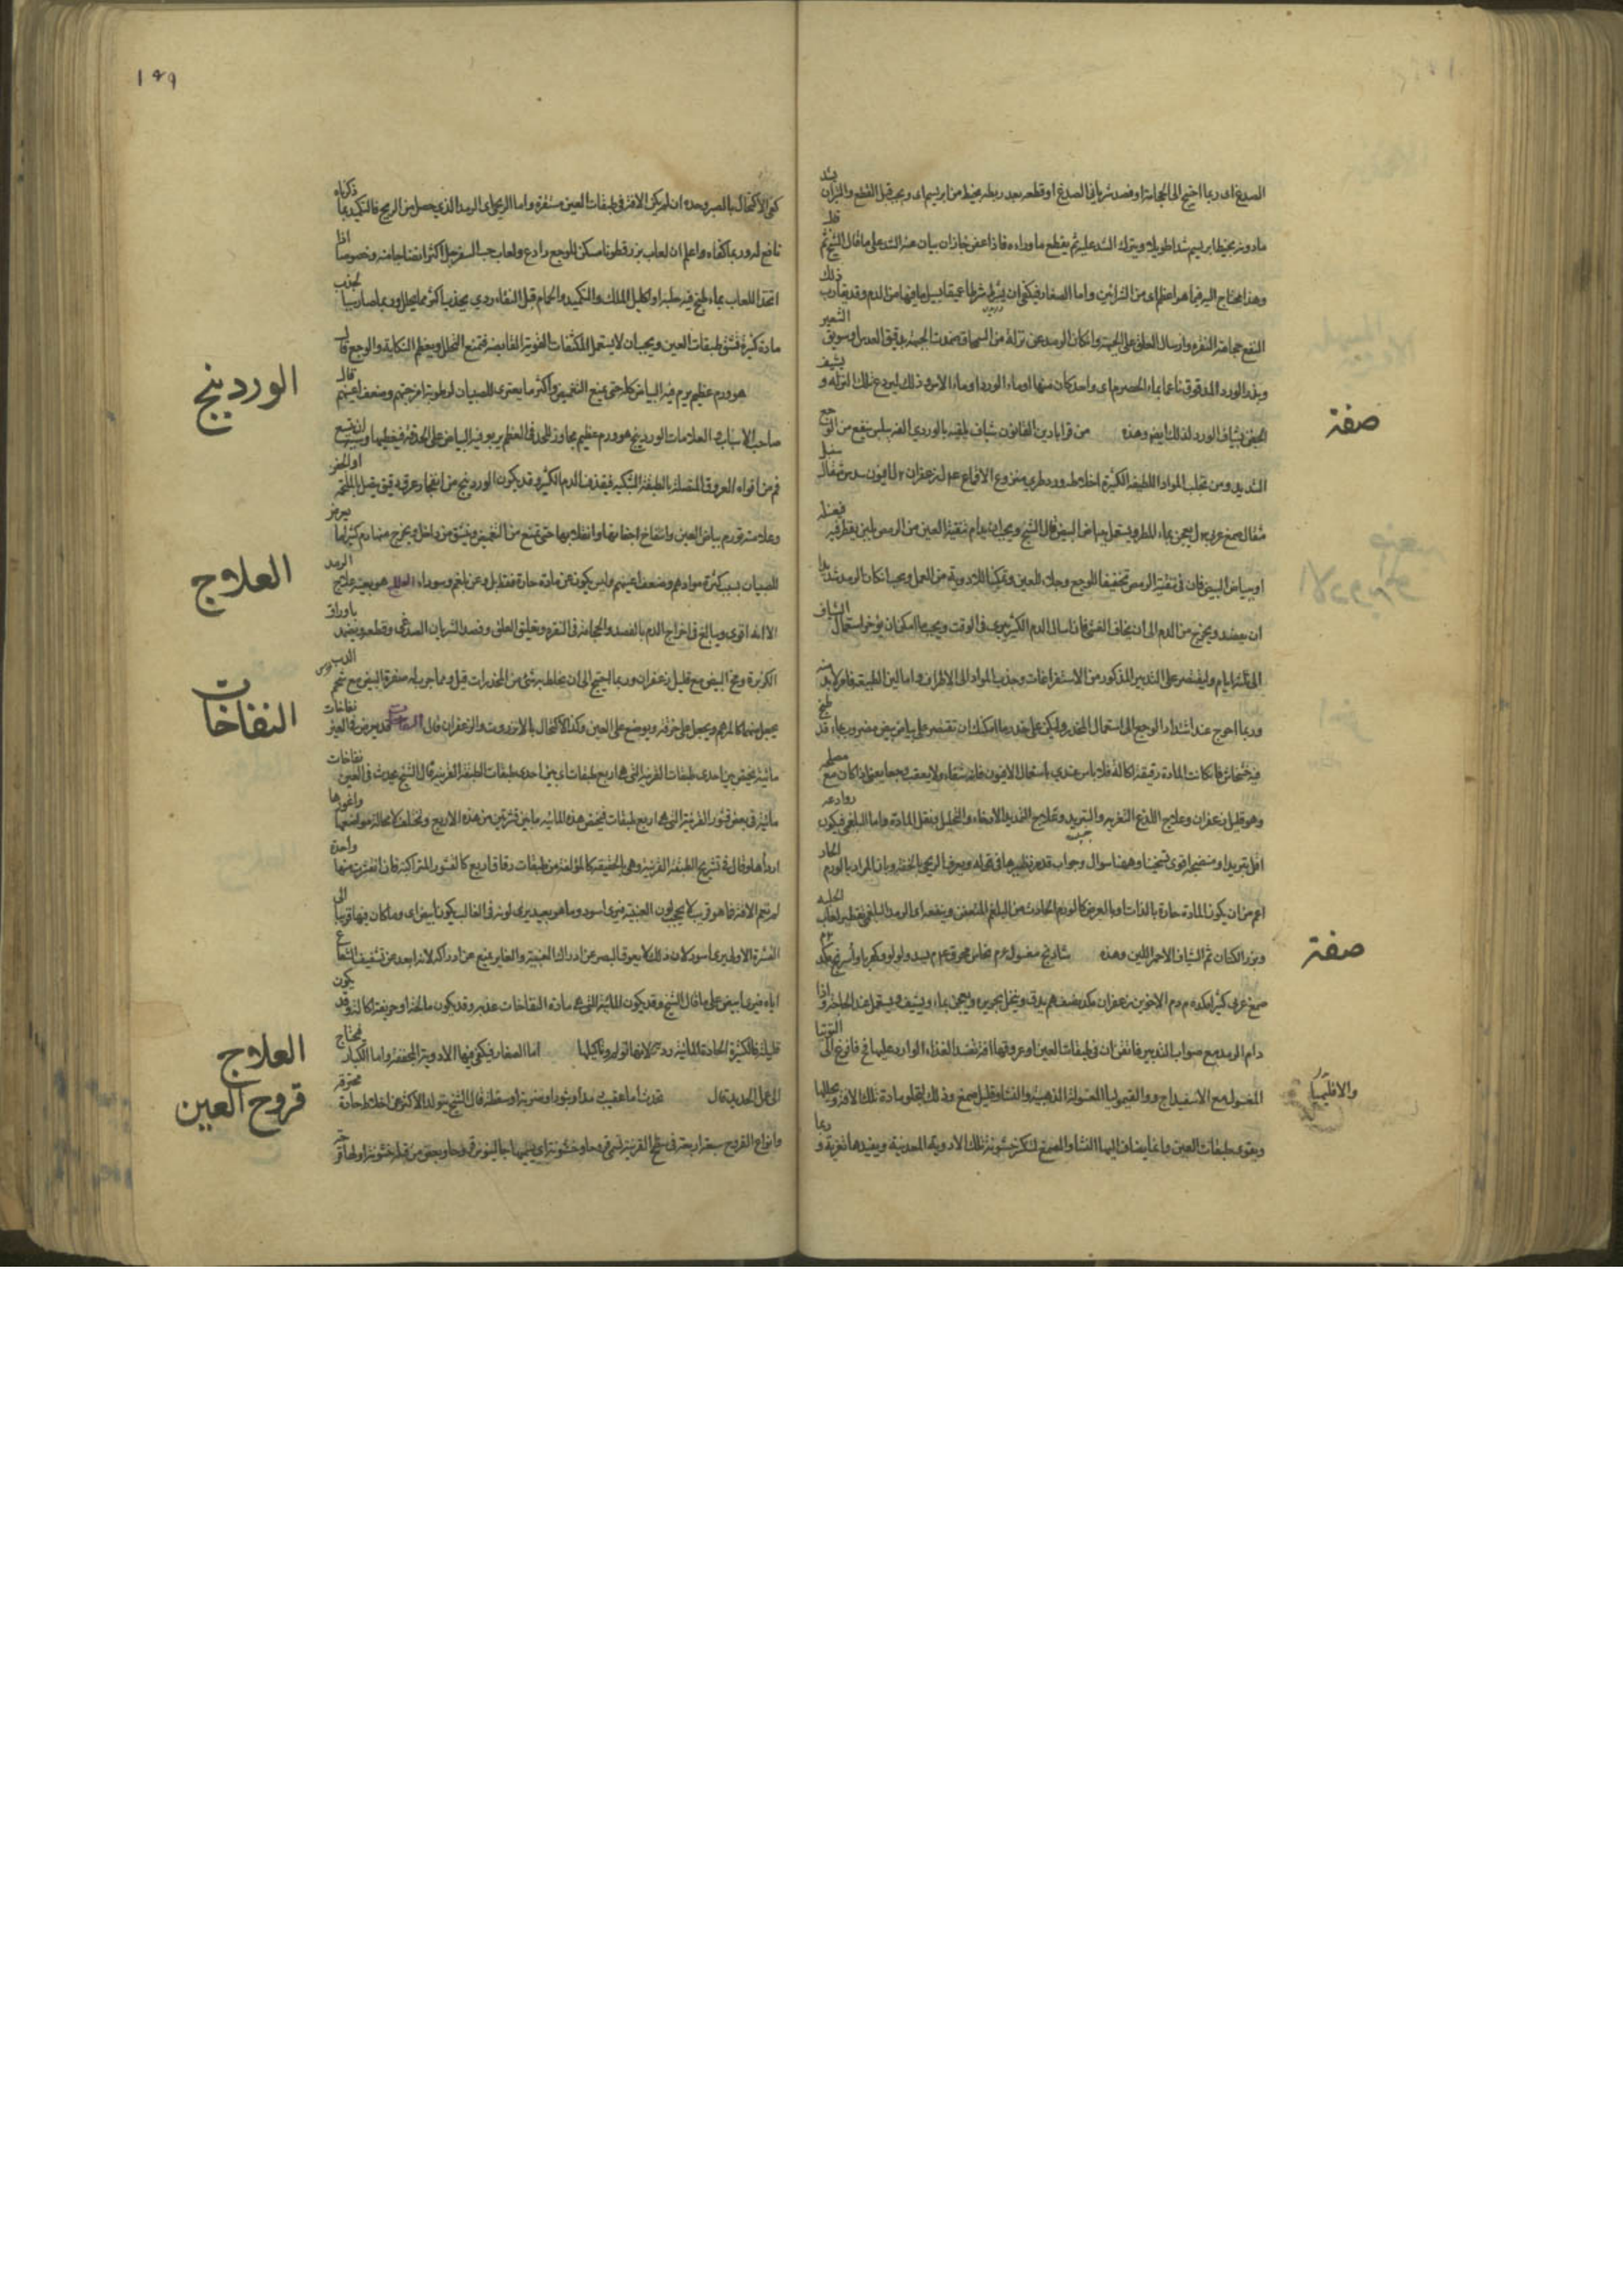 الصدغ اى ربما احتيج الى الحجامة او فصد شرياني الصدغ او قطعه بعد ربطه بخيط من ابريسم اى ويجب قبل القطع والبتر ان يشد
ما دونه بخيط ابريسم شدا طويلا ويترك الشد عليه ثم يقطع ما وراءه فاذا عفن جاز ان يبان عنه الشد على ما قال الشيخ ثم قال
وهذا يحتاج اليه فيما هو اعظم اى من الشرائين واما الصغار فيكفى ان يشرط شرطا عميقا ليسيل ما فيها من الدم وقد يقارب ذلك
النفع حجامة النقرة وارسال العلق على الجبهة وان كان الرمد عن نزلة من السمحاق ضمدت الجبهة بدقيق العدس او سويق الشعير
وبذر الورد المدقوق ناعما بماء الحصرم اى واحد كان منها او ماء الورد او ماء الاس وذلك ليردع تلك النزلة و يشيف
الجفن بشياف الورد لذلك ايضا وهذه
صفة
من قرابادين القانون شياف يلقب بالوردي الفه نيلس ينفع من الوجع
الشديد ومن تحلب المواد اللطيفة الكثيرة اخلاطه ورد طري منزوع الاقماع زعفران افيون سدس مثقال سنبل
مثقال صمغ عربي يعجن بماء المطر ويستعمل ببياض البيض قال الشيخ ويجب ان يدام تنقية العين من الرمص بلبن يقطر فيه فيغسله
او ببياض البيض فان فى تنقية الرمص تخفيفا للوجع وجلاء للعين وتمكينا للادوية من العمل ويجب ان كان الرمد شديدا
ان يفصد ويخرج من الدم الى ان يخاف الغشي فان اسالة الدم الكثير يبرى فى الوقت ويجب ما امكن ان يؤخر استعمال الشياف
الى ثلثة ايام وليقتصر على التدبير المذكور من الاستفراغات وجذب المواد الى الاطراف واما لين الطبيعة فامر لا بد منه
وربما احوج عند اشتداد الوجع الى استعمال المخدر وليكن على حذر ما امكنك ان تقتصر على بياض بيض مضروب بماء قد طبخ
فيه خشخاش فان كانت المادة رقيقة اكالة فلا باس عندي باستعمال الافيون فانه شفاء ولا يعقب وجعا يعنى اذا كان مع مصلحه
وهو قليل زعفران وعلاج اللذع التغرية والتبريد وعلاج التمديد الارخاء والتحليل بنقل المادة واما البلغمي فيكون روادعه
اقل تبريدا ومنضجه اقوى تسخينا وههنا سوال وجواب قد مر نظيرهما فى قوله ويعرف الريحي بالخفة وبان المراد بالورم الحار
اعم من ان يكون المادة حارة بالذات او بالعرض كالورم الحادث من البلغم المتعفن وينفعه اى الرمد البلغمي تقطير لعاب الحلبة
وبزر الكتان ثم الشياف الاحمر اللين وهذه
صفة
شادنج مغسول نحاس محرق بسد ولولو وكهربا
صمغ عربي كثيرا مكد دم الاخوين زعفران مكد نصف يدق وينخل بحريره ويعجن بماء ويشيف ويستعمل عند الحاجة و اذا
دام الرمد مع صواب التدبير فاتقن ان فى طبقات العين او عروقها افة تفسد الغذاء الوارد عليها فح فافزع الى التوتيا
المغسول مع الاسفيداج
والاقليميا
والقيموليا المغسولة الذهبية والنشا وقليل صمغ وذلك لتقلو مادة تلك الافة ويحللها
ويقوى طبقات العين وانما يضاف اليها النشا والصمغ لتكسر خشونة تلك الادوية المعدنية ويفيدها تغرية و ربما
١٤٩
كفى الاكتحال بالصبر وحده ان لم يكن الافة فى طبقات العين مستقرة واما الريحي اى الرمد الذي يحصل من الريح فالتكميد بما ذكرناه
نافع له وربما كفاه واعلم ان لعاب بزر قطونا مسكن للوجع رادع ولعاب حب السفرجل اكثر انضاجا منه وخصوصا اذا
اتخذ اللعاب بماء طبخ فيه حلبة او اكليل الملك والتكميد والحمام قبل النقاء ردي يجذب اكثر مما يحلل وربما صار سببا لجذب
مادة كثيرة فتشق طبقات العين ويجب ان لا يستعمل المكثفات القوية القابضة فتمنع التحلل ويعظم النكاية والوجع قال
الوردينج
هو ورم عظيم يرم فيه البياض كله حتى يمنع التغميض واكثر ما يعترى للصبيان لرطوبة امزجتهم وضعف اعينهم قال
صاحب الاسباب والعلامات الوردينج هو ورم عظيم يجاوز للحد فى العظم يربو فيه البياض على الحدقة فيغطيها وسببه ان يتسع
فم من افواه العروق المتصلة بالطبقة الشبكية فيقذف الدم الكثير وقد يكون الوردينج من انفجار عرق دقيق يتصل بالملتحم او الجفن
وعلامته تورم بياض العين وانتفاخ اجفانها وانقلابها حتى تمتنع من التغميض وينشق من داخل ويخرج منها دم كثير كما يعرض
للصبيان بسبب كثرة موادهم وضعف اعينهم وليس يكون عن مادة حارة فقط بل وعن بلغم وسوداء
العلاج
هو بعينه علاج الرمد
الا انه اقوى ويبالغ فى اخراج الدم بالفصد والحجامة فى النقرة وتعليق العلق وفصد الشريان الصدغي وقطعه ويضمد باوراق
الكزبرة ومخ البيض مع قليل زعفران وربما احتيج الى ان يخلط به شئ من المخدرات قيل ومما جرب له صفرة البيض مع شحم الدب
يجعل منهما كالمرهم ويجعل على خرقة ويوضع على العين وكذا الاكتحال بالانزروت والزعفران قال
النفاخات
قد يعرض فى العين نفاخات
مائية تحتقن بين احدى طبقات القرنية التى هى اربع طبقات اى بين احدى طبقات الطبقة القرنية قال الشيخ يحدث فى العين نفاخات
مائية فى بعض قشور القرنية التى هى اربع طبقات فيحتقن هذه المائية ما بين قشرتين من هذه الاربع وتختلف لا محالة مواضعها واغورها
اردأها وقال فى تشريح الطبقة القرنية وهى بالحقيقة كالمؤلفة من طبقات رقاق اربع كالقشور المتراكبة فان انقشرت منها واحدة
لم تعم الافة فما هو قريب لا يحجب لون العنبية فيرى اسود وما هو بعيد يرى لونه فى الغالب يكون ابيض اى وما كان فيها قريبا الى
القشرة الاولى يرى اسود لان ذلك لا يعوق البصر عن ادراك العنبية والغاير يمنع عن ادراكه لانه ابعد من تشفيف الشعاع
اياه فيرى ابيض على ما قال الشيخ وقد يكون المائية التى هى مادة النفاخات عذبة وقد يكون مالحة او حريفة اكالة وقد يكون
قليلة فالكثيرة الحادة المائية ردية لانها اتولد وتاكيلها
العلاج
اما الصغار فيكفى فيها الادوية المجففة واما الكبار فيحتاج
الى عمل الحديد قال
قروح العين
تحدث اما عقيب رمد او بثور او ضربة او سقطة قال الشيخ يتولد الاكثر عن اخلاط حادة محترقة
وانواع القروح سبعة اربعة فى سطح القرنية تسمى قروحا وخشونة اى يسميها جالينوس قروحا وبعض من قبله خشونة اولها